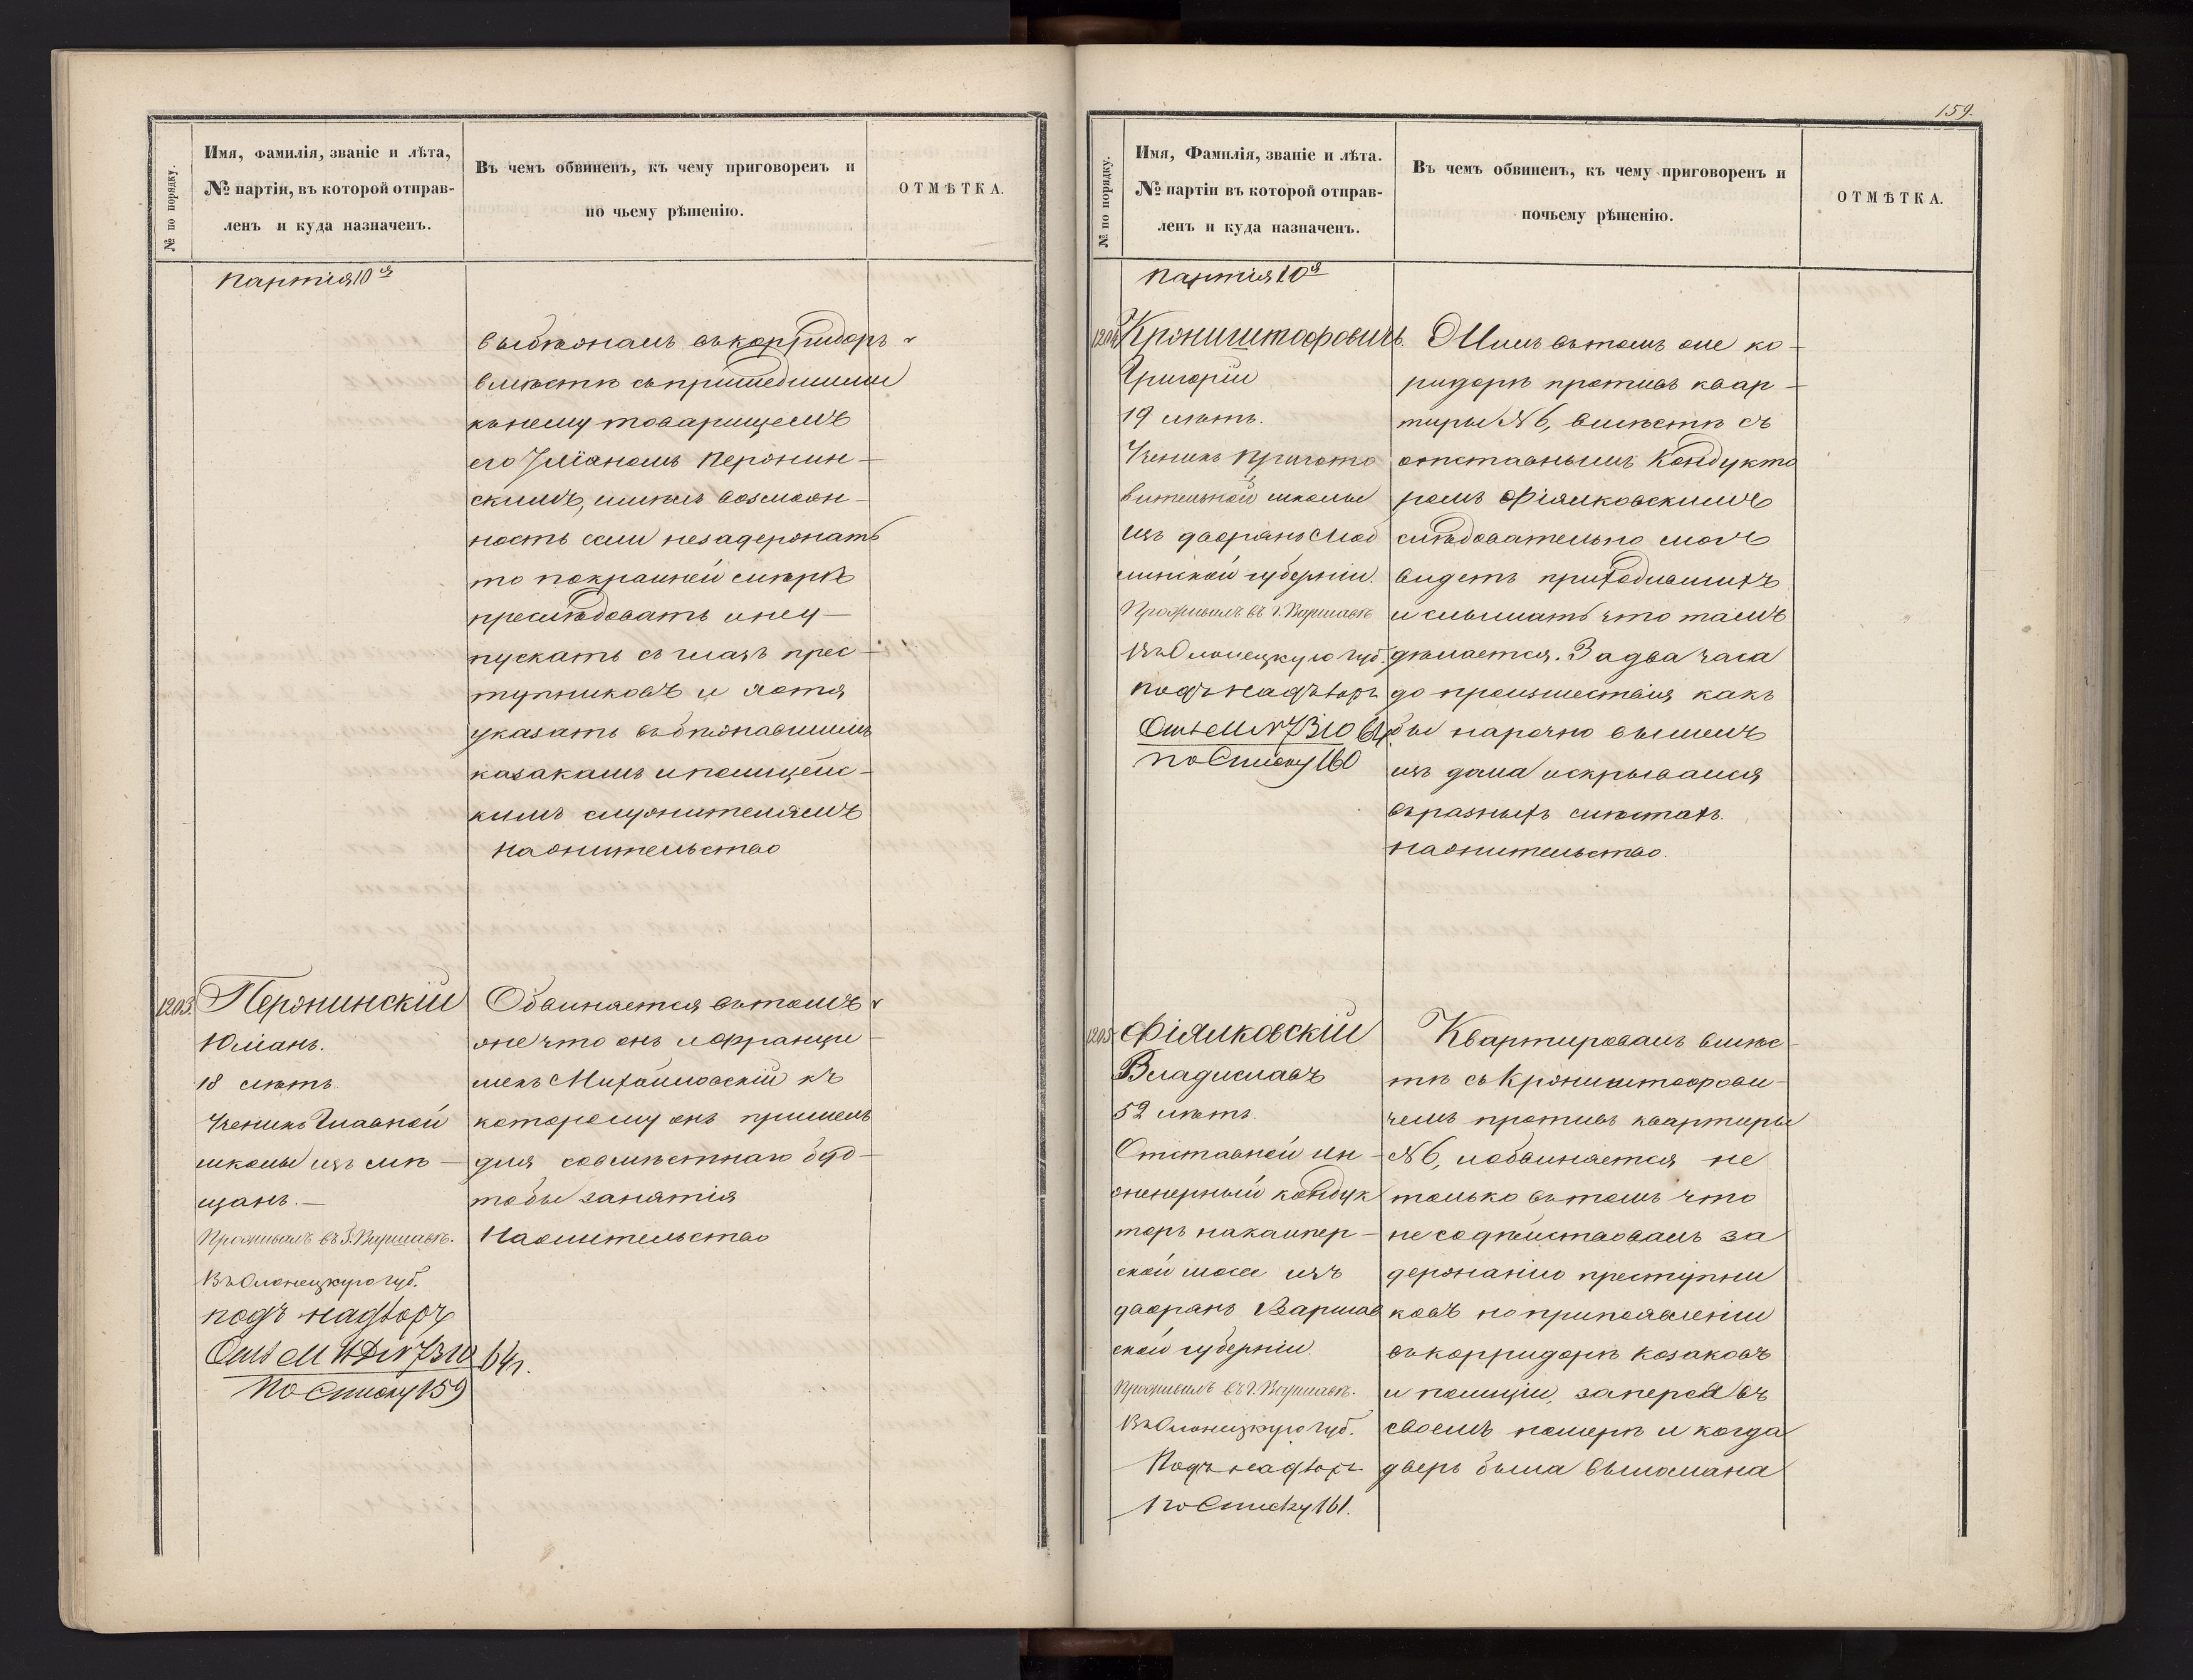 № по порядку.
Имя, фамилія, званіе и лѣта,
№ партіи, въ которой отправ-
ленъ и куда назначенъ.
Въ чемъ обвиненъ, къ чему приговоренъ и
по чьему рѣшенію.
ОТМѢТКА.
Партія 10я
выбѣжалъ въ корридоръ
вмѣстѣ съ пришедшимъ
къ нему товарищемъ
его Юліаномъ Пержин-
скимъ, имѣлъ возмож-
ность если незадержать
то покрайней мѣрѣ
преслѣдовать и неу-
пускать съ глазъ прес-
тупниковъ и хотя
указать вбѣжавшимъ
казакамъ и полицейс-
кимъ служителямъ
На жительство
1203.
Пержинскій
Юліанъ.
18 лѣтъ.
Ученикъ Главной
школы изъ мѣ-
щанъ.—
Проживалъ въ Г. Варшавѣ.
Въ Олонецкую губ.
подъ надзоръ
От М В Д N 7310 64 г.
По Списку 159
Обвиняется въ томъ
же что онъ и Франци
шекъ Михайловскій къ
которому онъ пришелъ
для совмѣстнаго буд-
тобы занятія
На жительство
159.
№ по порядку.
Имя, Фамилія, званіе и лѣта.
№ партіи въ которой отправ-
ленъ и куда назначенъ.
Въ чемъ обвиненъ, къ чему приговоренъ и
почьему рѣшенію.
ОТМѢТКА.
Партія 10я
1204
Кроништофовичъ.
Григорій
19 лѣтъ.
Ученикъ пригото
вительной школы
изъ дворянъ
минской губерніи.
Проживалъ въ г. Варшавѣ
Въ Олонецкую губ.
подъ надзоръ
От М N 7310 64
По Списку 160
Жилъ въ томъ же ко-
ридорѣ противъ квар-
тиры N 6, вмѣстѣ съ
отставнымъ Кондукто
ромъ Фіялковскимъ
слѣдовательно могъ
видеть приходившихъ
и слышать что тамъ
дѣлается. За два часа
до произшествія какъ
бы нарочно вышелъ
изъ дома и скрывался
въ разныхъ мѣстахъ.
на жительство.
1205
Фіялковскій
Владиславъ
52 лѣтъ
Отставной ин-
женерный кондук
торъ на калишер-
ской шоссе изъ
дворянъ Варшав
ской губерніи.
Проживалъ въ г. Варшавѣ.
Въ Олонецкую губ.
Подъ надзоръ
По Списку 161.
Квартировалъ вмѣс-
тѣ съ Кроништофови-
чемъ противъ квартиры
N 6, и обвиняется не
только въ томъ что
не содѣйствовалъ за
держанію преступни
ковъ но при появленіи
въ корридорѣ козаковъ
и полиціи, заперся въ
своемъ номерѣ и когда
дверь была выломана